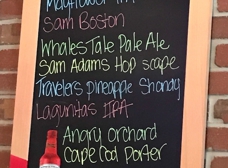 Mayflower
Sam Boston
Whales Tale Pale Ale
Sam Adams Hop scape
Travelers Pineapple Shandy
Lagunitas IPA
Angry Orchard
Cape Cod Porter